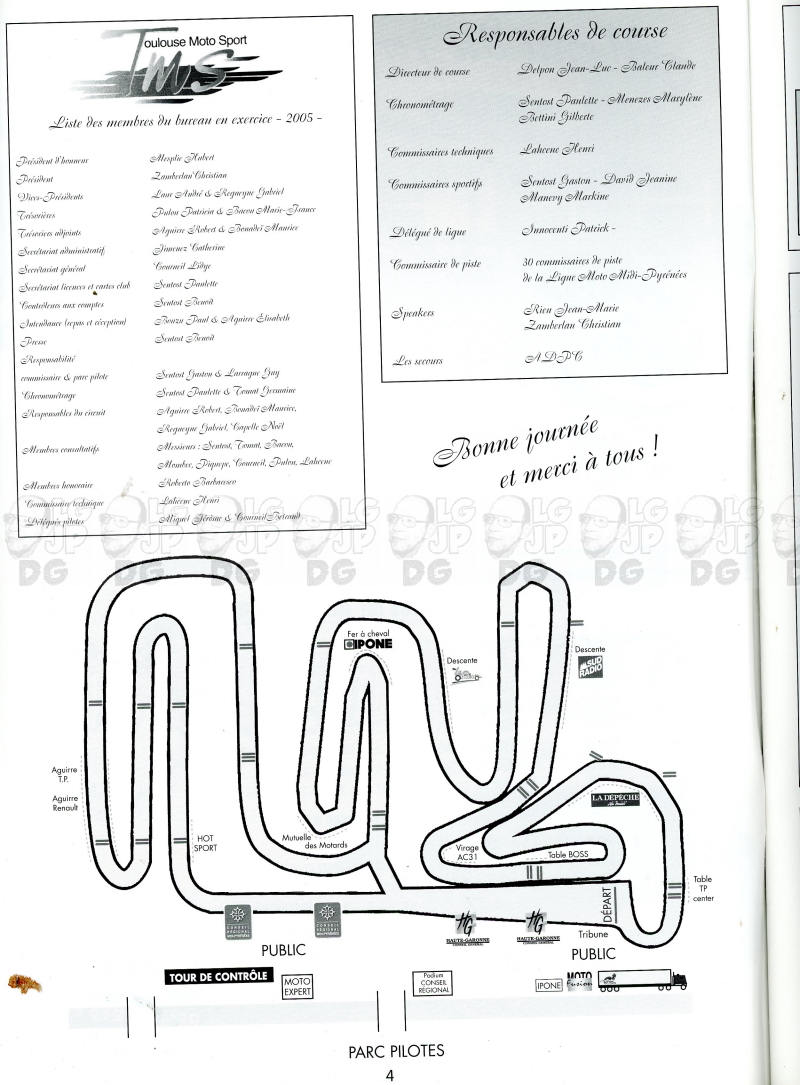 Toulouse Moto Sport
TMS
Liste des membres du bureau en exercice - 2005 -
Président d'honneur Mesplié Hubert
Président Zamberlan Christian
Vices-Présidents Laur André & Regueyne Gabriel
Trésorières Pulou Patricia & Bacou Marie-France
Trésoriers adjoints Aguirre Robert & Bonadeï Maurice
Secrétariat administratif Jimenez Catherine
Secrétariat général Courneil Lidye
Secrétariat licences et cartes club Sentost Paulette
Contrôleurs aux comptes Sentost Benoît
Intendance (repas et réception) Bouzu Paul & Aguirre Elisabeth
Presse Sentost Benoît
Responsabilité
commissaire & parc pilote Sentost Gaston & Larroque Guy
Chronométrage Sentost Paulette & Tomat Germaine
Responsables du circuit Aguirre Robert, Bonadeï Maurice,
Regueyne Gabriel, Capelle Noël
Membres consultatifs Messieurs : Sentost, Tomat, Bacou,
Courneil, Pulou, Laheene
Membres honoraire Roberto
Commissaire technique Laheene Henri
Délégués pilotes Miquel Jérôme & Courneil Betrand
Responsables de course
Directeur de course Delpon Jean-Luc - Baleur Claude
Chronométrage Sentost Paulette - Menezes Marylène
Bettini Gilberte
Commissaires techniques Laheene Henri
Commissaires sportifs Sentost Gaston - David Jeanine
Manevy Markine
Délégué de ligue Innocenti Patrick -
Commissaire de piste 30 commissaires de piste
de la Ligue Moto Midi-Pyrénées
Speakers Rieu Jean-Marie
Zamberlan Christian
Les secours ADPC
Bonne journée
et merci à tous !
LG
JP
DG
Fer à cheval
IPONE
Descente
Descente
SUD
RADIO
Aguirre
T.P.
Aguirre
Renault
HOT
SPORT
Mutuelle
des Motards
Virage
AC31
LA DEPECHE
Table BOSS
Table
TP
center
DÉPART
CONSEIL
RÉGIONAL
MIDI-PYRÉNÉES
CONSEIL
RÉGIONAL
MIDI-PYRÉNÉES
HG
HAUTE-GARONNE
CONSEIL GENERAL
HG
HAUTE-GARONNE
CONSEIL GENERAL
Tribune
PUBLIC
PUBLIC
TOUR DE CONTRÔLE
MOTO
EXPERT
Podium
CONSEIL
REGIONAL
IPONE
MOTO
Fusion
PARC PILOTES
4